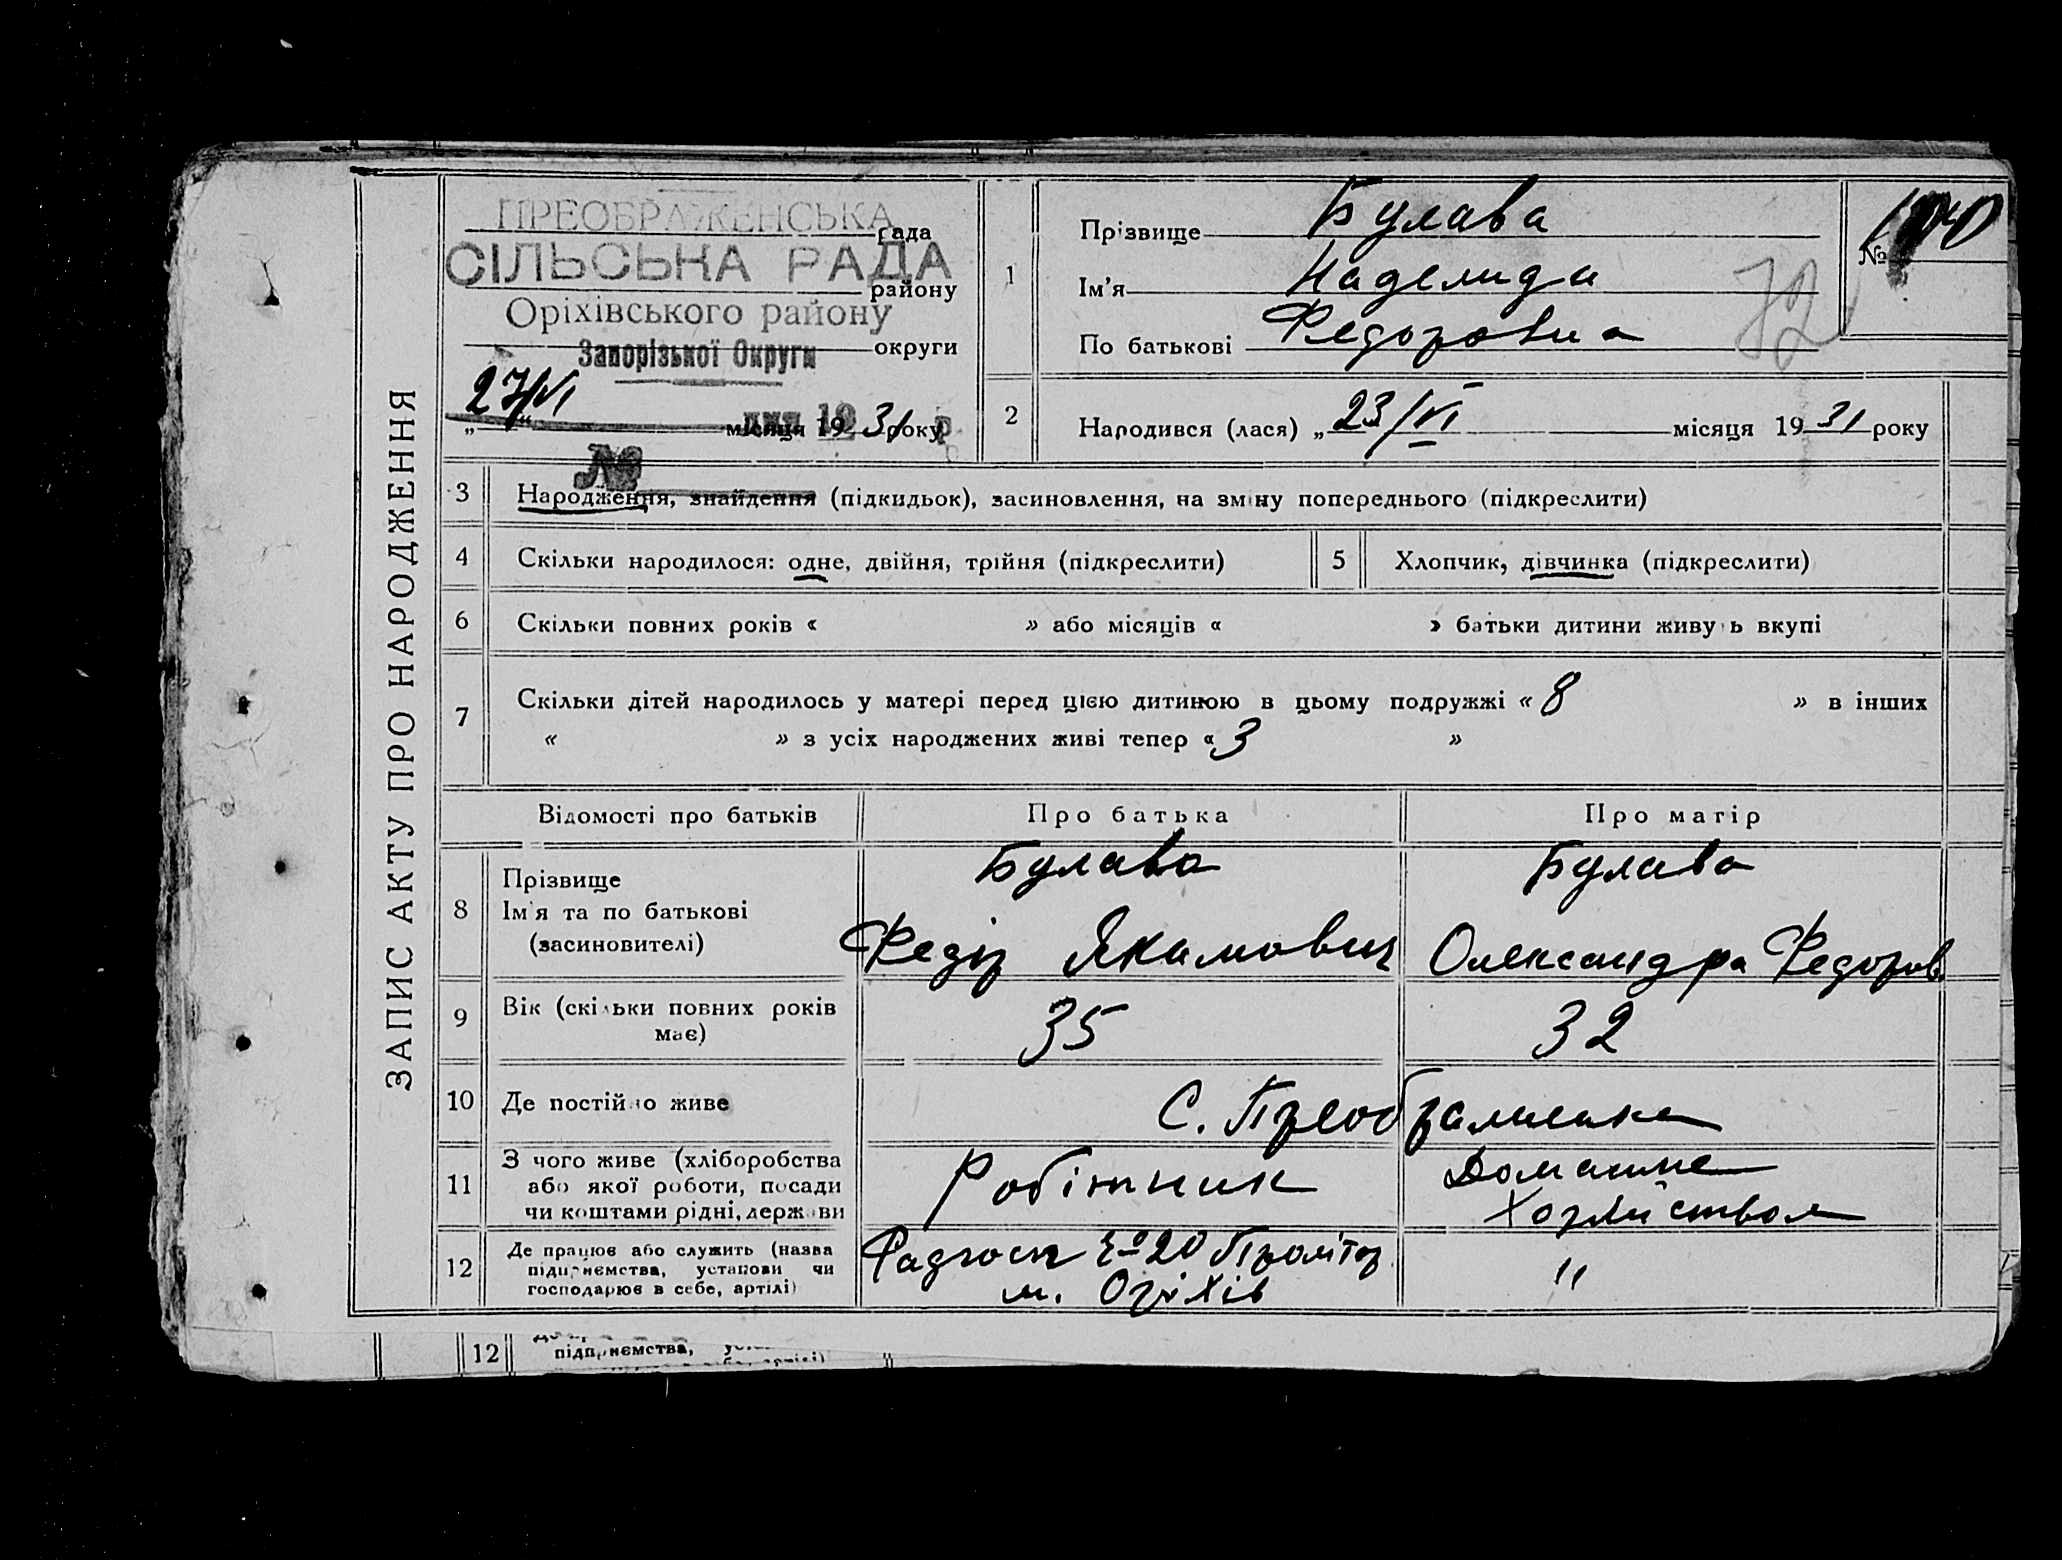 ЗАПИС АКТУ ПРО НАРОДЖЕННЯ
ПРЕОБРАЖЕНСЬКА рада
СІЛЬСЬКА РАДА
району
Оріхівського району
округи
Запорізької Округи
27/VI
„ “ місяця 19 31 року
№
1
Прізвище Булава
Ім'я Надежда
По батькові Федоровна
№
72
2
Народився (лася) „ 23/VI місяця 19 31 року
3 Народження, знайдення (підкидьок), засиновлення, на зміну попереднього (підкреслити)
4 Скільки народилося: одне, двійня, трійня (підкреслити)
5 Хлопчик, дівчинка (підкреслити)
6 Скільки повних років « » або місяців « » батьки дитини живуть вкупі
7 Скільки дітей народилось у матері перед цією дитиною в цьому подружжі « 8 » в інших
« » з усіх народжених живі тепер « 3 »
Відомості про батьків Про батька Про матір
8 Прізвище
Ім'я та по батькові
(засиновителі)
Булава
Федір Якимович
Булава
Олександра Федоров
9 Вік (скільки повних років
має)
35 32
10 Де постійно живе С. Преображенка
11 З чого живе (хліборобства
або якої роботи, посади
чи коштами рідні, держави
Робітник
Домашне
Хозяйством
12 Де працює або служить (назва
підприємства, установи чи
господарює в себе, артілі)
Радгосп 20
м. Оріхів
"
12 підприємства,